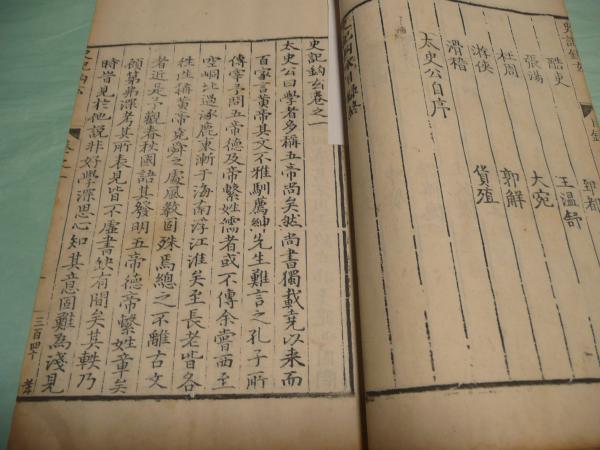 酷吏 郅都
張湯 王溫舒
杜周 大宛
游俠 郭解
滑稽 貨殖
太史公自序
史記鈎玄卷之一
太史公曰學者多稱五帝尚矣然尚書獨載堯以來而
百家言黃帝其文不雅馴薦紳先生難言之孔子所
傳宰予問五帝德及帝繫姓儒者或不傳余嘗西至
空峒北過涿鹿東漸于海南浮江淮矣至長老皆各
徃徃稱黃帝堯舜之處風敎固殊焉總之不離古文
者近是予觀春秋國語其發明五帝德帝繫姓章矣
顧第弗深考其所表見皆不虛書缺有間矣其軼乃
時時見於他說非好學深思心知其意固難為淺見
三百四十